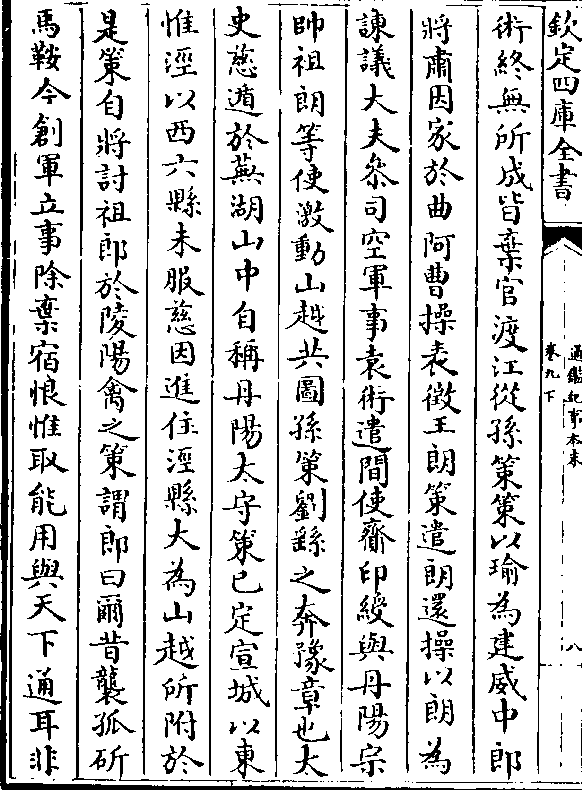 欽定四庫全書
通鑑紀事本末
卷九下
八
術終無所成皆棄官渡江從孫策策以瑜為建威中郎
將肅因家於曲阿曹操表徴王朗策遣朗還操以朗為
諫議大夫叅司空軍事袁術遣間使齎印綬與丹陽宗
帥祖朗等使激動山越共圖孫策劉繇之奔豫章也太
史慈遁於蕪湖山中自稱丹陽太守策已定宣城以東
惟涇以西六縣未服慈因進住涇縣大為山越所附於
是策自將討祖郎於陵陽禽之策謂郎曰爾昔襲孤斫
馬鞍今創軍立事除棄宿恨惟取能用與天下通耳非